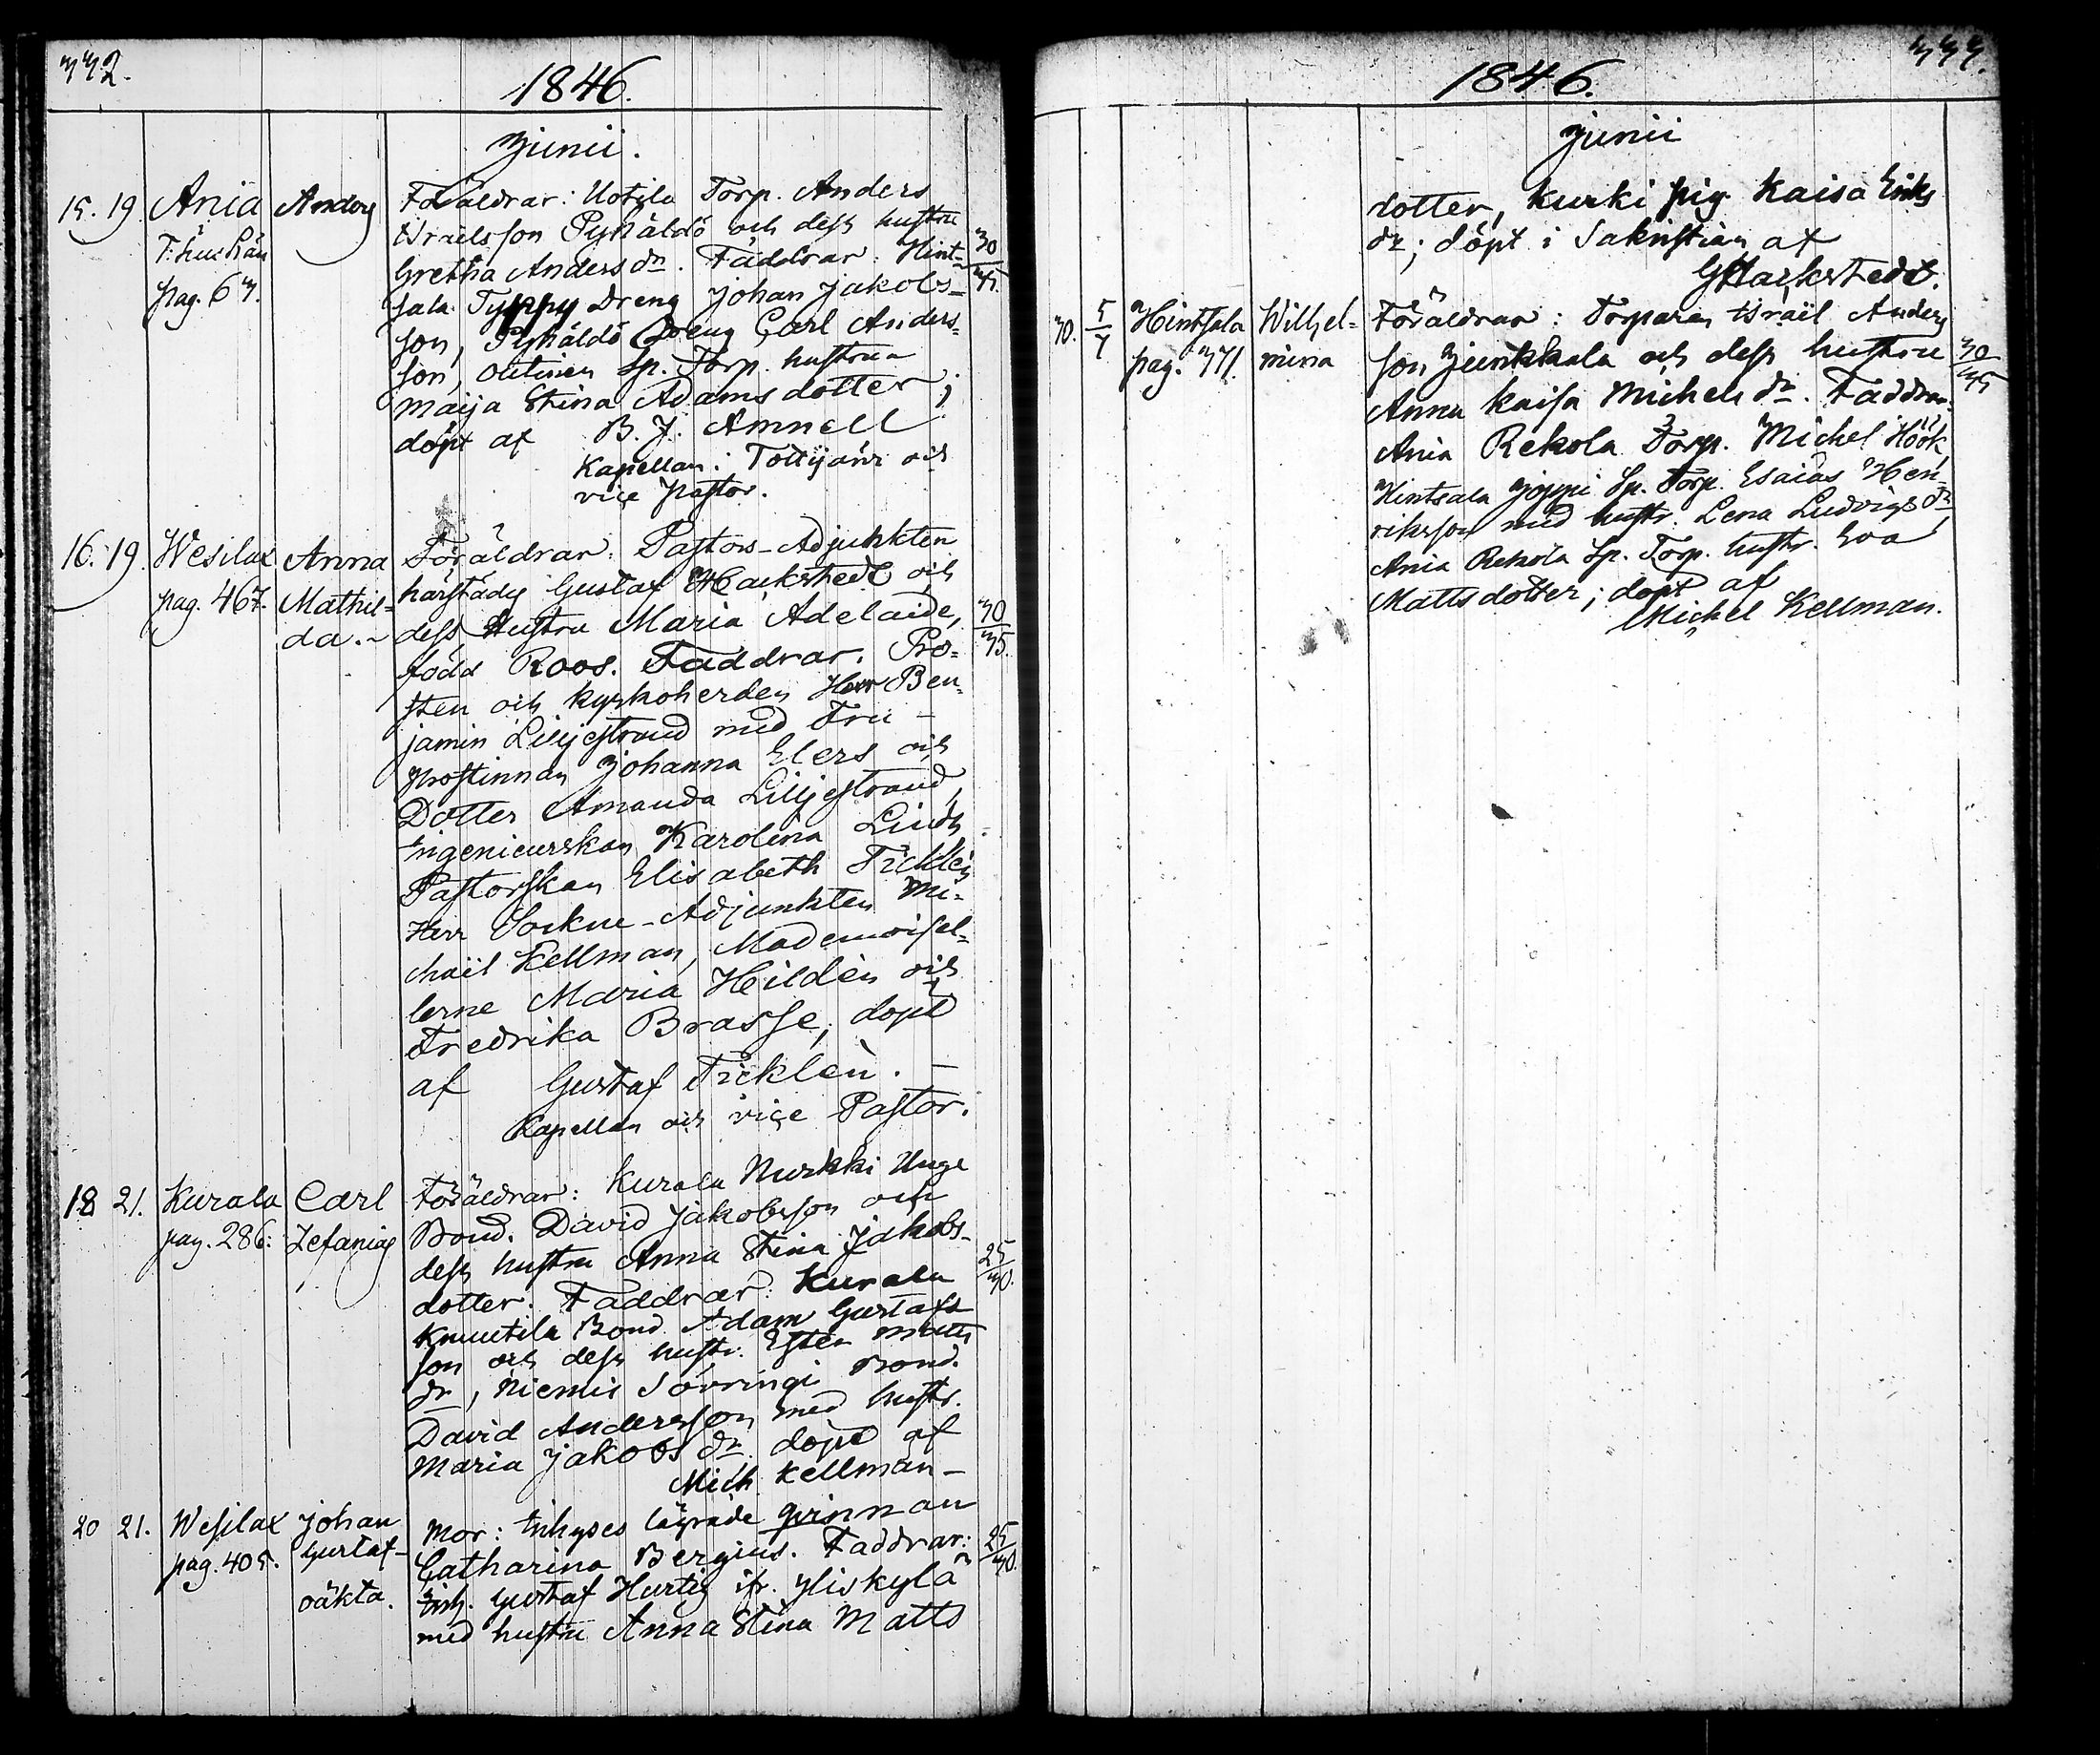 332.
1846.
Junii.
15. 19. Ania Anders Föräldrar: Uotila Torp. Anders
pag. 63. Israelsson Pyhäldö och dess hustru
Gretha Anders dr. Faddrar: Hint- 30/35
sala Typpy Dreng Johan Jakobs-
son, Pyhäldö Dreng Carl Anders-
son, Outinen Sp. Torp. hustrun
Maija Stina Adamsdotter;
döpt af B. J. Amnell
Kapellan i Tottijärvi och
vice Pastor.
16. 19. Wesilax Anna Föräldrar: Pastors-Adjunkten
pag. 467. Mathil- härstädes Gustaf Hackstedt och
da.- dess Hustru Maria Adelaide, 30/35.
född Roos. Faddrar: Pro-
sten och kyrkoherden Herr Ben-
jamin Liljestrand med Fru-
Prostinnan Johanna Elers och
Dotter Amanda Liljestrand,
Ingenieurskan Karolina Lindh
Pastorskan Elisabeth Ticklén
Herr Sockne-Adjunkten Mi-
chaël Kellman, Mademoisel-
lerne Maria Hildén och
Fredrika Brasse; döpt
af Gustaf Ticklén. -
Kapellan och vice Pastor.
18 21. Kurala Carl Föräldrar: Kurala Nurkki Unge
pag. 286: Zefanias Bond. David Jakobsson och
dess hustru Anna Stina Jakobs- 25/30.
dotter. Faddrar: Kurala
Knuutila Bond Adam Gustafs
son och dess hustr. Ester Matts
dr, Niemis Sorringi Bond.
David Andersson med hustr.
Maria Jakobs dr. döpt af
Mich. Kellman-
20 21. Wesilax Johan Mor: Inhyses lägrade qvinnan
pag. 405. Gustaf- Catharina Bergius. Faddrar: 25/30.
oäkta. Inh. Gustaf Hurtig ifr. Yliskylä
med hustru Anna Stina Matts
333.
1846.
Junii
dotter, Kurki pig Kaisa Eriks
dr; döpt i Sakristian af
GHackstedt.
30. 5/7 Hintsala Wilhel- Föräldrar: Torparen Israël Anders
pag. 371. mina son Junkkala och dess hustru 30/35
Anna Kaisa Michels dr. Faddrar:
Ania Rekola Torp. Michel Höök,
Hintsala Joppi Sp. Torp. Esaias Hen-
riksson med hustr. Lena Ludvigs dr
Ania Rekola Sp. Torp. hustr. Eva
Mattsdotter; döpt af
Michel Kellman.